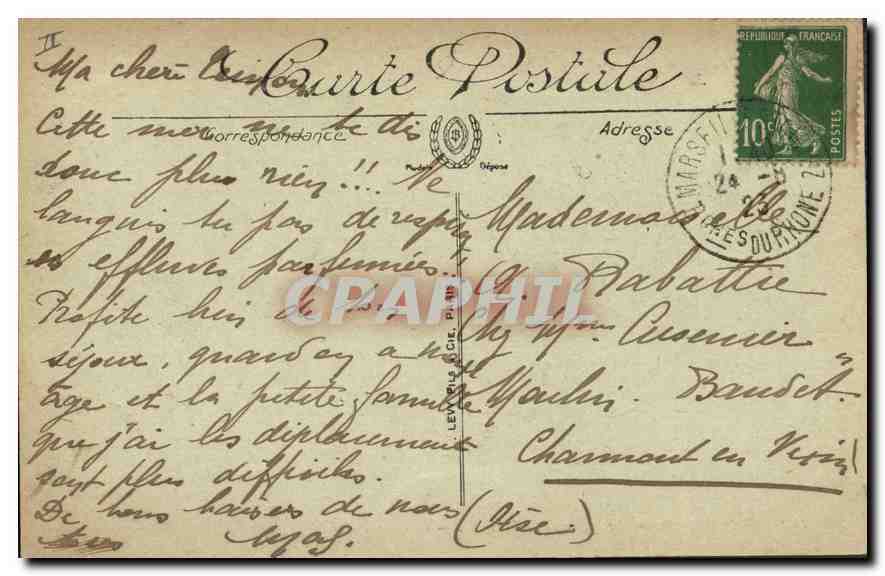 II
Carte Postale
Correspondance
Adresse
Modèle Déposé
REPUBLIQUE FRANÇAISE
10c
POSTES
MARSEILLE
24 - 8
23
BCHES DU RHONE
Ma chère
Cette mer ne te dis
donc plus rien !!! Ne
languis tu pas de respirer
ses effluves parfumées..
Profite bien de ton
séjour, quand on a mon
âge et la petite famille
que j'ai les déplacements
sont plus difficiles.
De bons baisers de nous
tous
LEVY FILS & CIE, PARIS
Mademoiselle
Rabattie
chez Mme Cusenier
Moulin Baudet
Charmont en Vexin
(Oise)
CPAPHIL